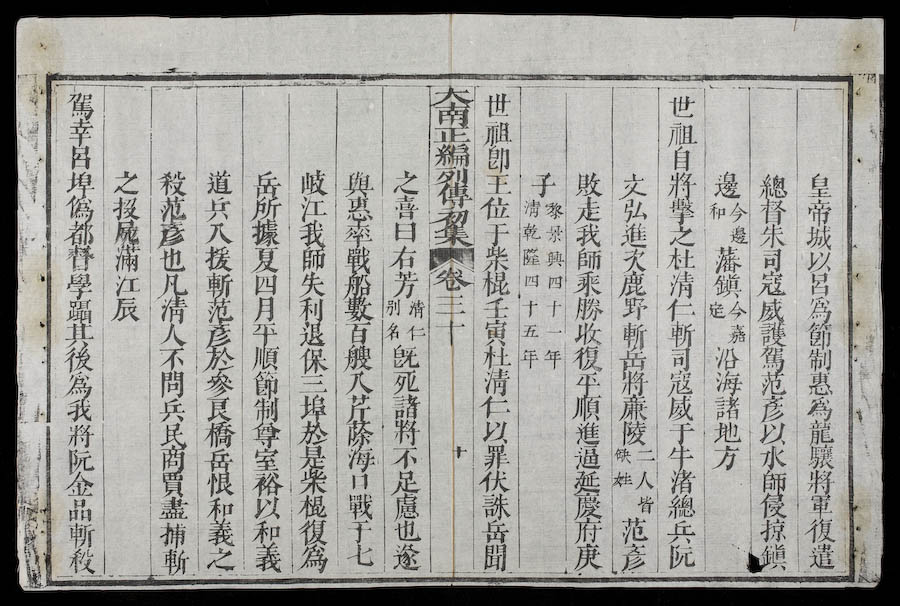 皇帝城以呂爲節制惠爲龍驤將軍復遣
總督朱司寇威護駕范彥以水師侵掠鎭
邊今邊和藩鎭今嘉定沿海諸地方
世祖自將擊之杜淸仁斬司寇威于牛渚總兵阮
文弘進次鹿野斬岳將廉陵二人皆缺姓范彥
敗走我師乘勝收復平順進過延慶府庚
子黎景興四十一年淸乾隆四十五年
世祖卽王位于柴棍壬寅杜淸仁以罪伏誅岳聞
大南正編列傳初集 卷三十 十
之喜曰右芳淸仁別名旣死諸將不足慮也遂
與惠率戰船數百艘入芹蒢海口戰于七
岐江我師失利退保三埠於是柴棍復爲
岳所據夏四月平順節制尊室裕以和義
道兵入援斬范彥於參良橋岳恨和義之
殺范彥也凡淸人不問兵民商賈盡捕斬
之投屍滿江辰
駕幸呂埠僞都督學躡其後爲我將阮金品斬殺